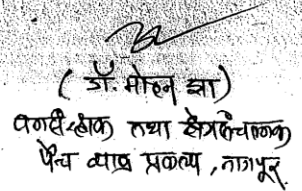 ( डॉ. मोहन झा)
वनसंरक्षक तथा क्षेत्रसंचालक
पेंच व्याघ्र प्रकल्प, नागपूर